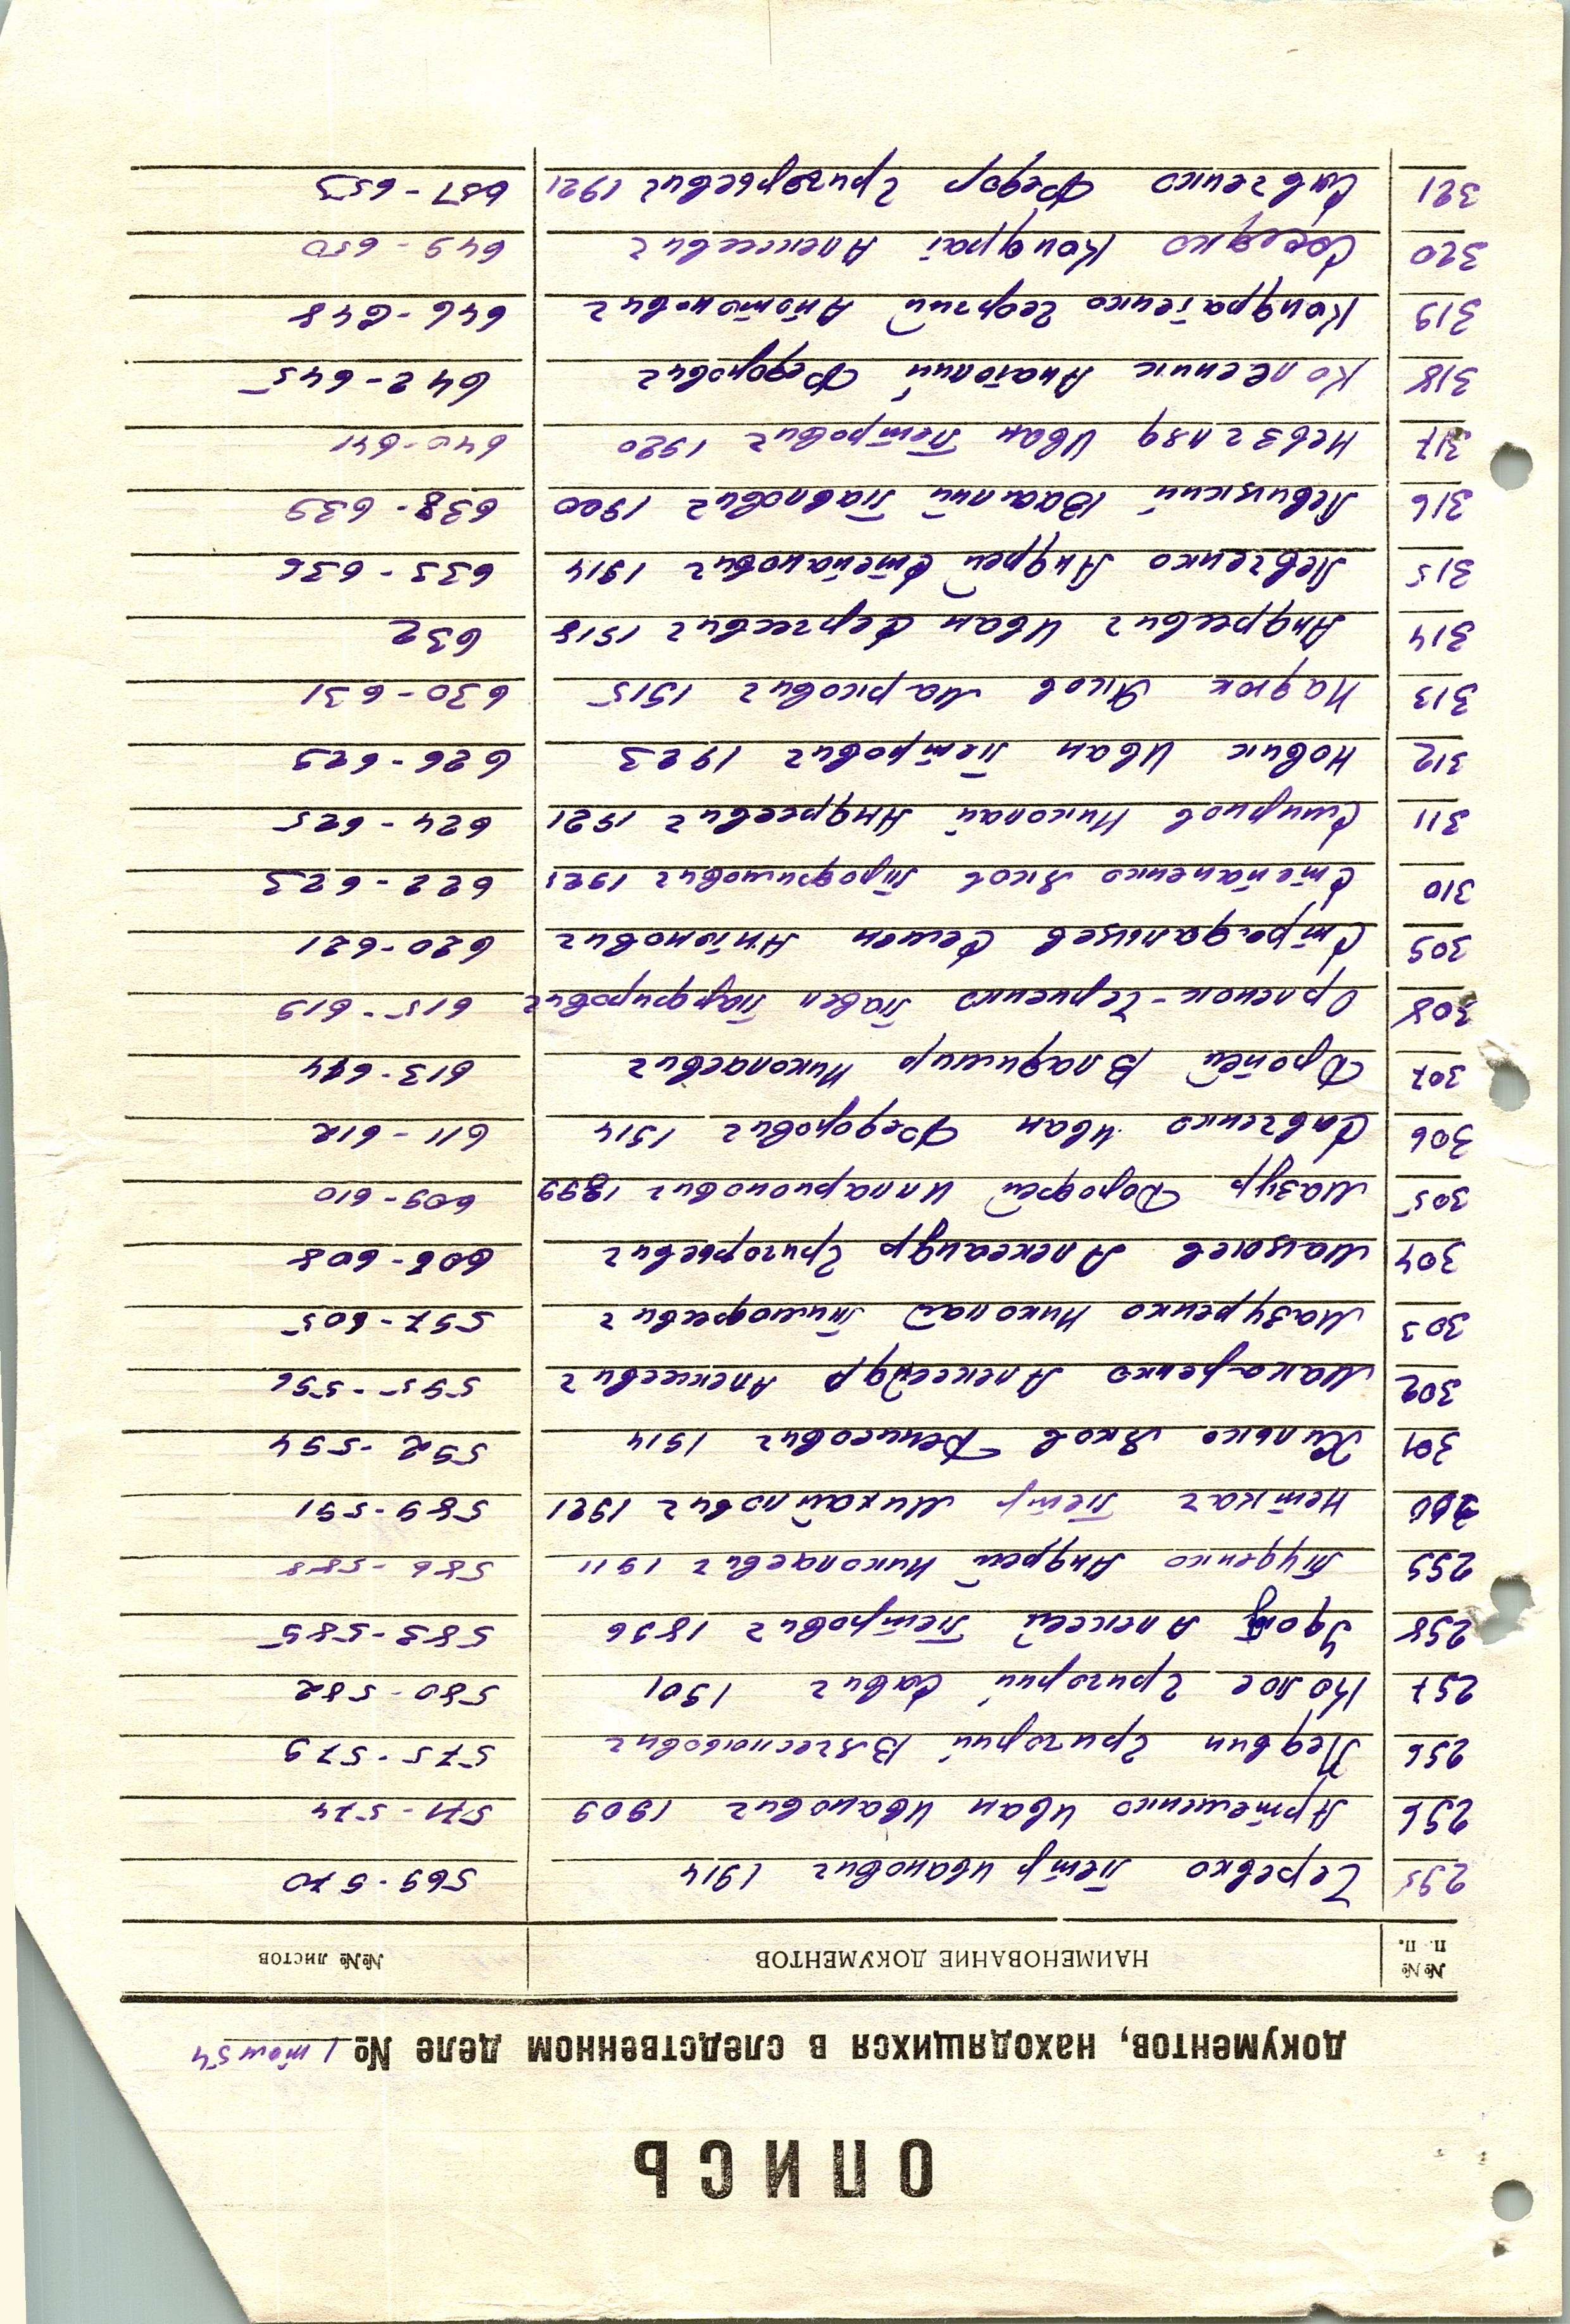 ОПИСЬ
документов, находящихся в следственном деле № 1 том 54
№№ п. п. НАИМЕНОВАНИЕ ДОКУМЕНТОВ №№ листов
295 Черевко Пётр Иванович 1914 569-570
296 Артёменко Иван Иванович 1909 571-574
256 Педвин Григорий Вячеславович 575-579
297 Колос Григорий Савич 1901 580-582
298 Удод Алексей Петрович 1896 583-585
299 Туденко Андрей Николаевич 1911 586-588
300 Неткач Петр Михайлович 1921 589-591
301 Хилько Яков Денисович 1914 592-594
302 Макаренко Александр Алексеевич 595-596
303 Мазуренко Николай Тимофеевич 597-605
304 Мацюев Александр Григорьевич 606-608
305 Мазур Дорофей Илларионович 1899 609-610
306 Савченко Иван Федорович 1914 611-612
307 Дропей Владимир Николаевич 613-614
308 Орленок-Черненко Павел Парфирович 615-619
309 Страдальцев Семен Антонович 620-621
310 Степаненко Яков Трофимович 1921 622-623
311 Смирнов Николай Андреевич 1921 624-625
312 Новик Иван Петрович 1923 626-629
313 Надюк Яков Маркович 1915 630-631
314 Андреевич Иван Сергеевич 1918 632
315 Левченко Андрей Степанович 1914 633-636
316 Левицкий Василий Павлович 1900 638-639
317 Невзгляд Иван Петрович 1920 640-641
318 Колесник Анатолий Федорович 642-645
319 Кондратенко Георгий Антонович 646-648
320 Кондрат Алексеевич 649-650
321 Савченко Федор Григорьевич 1921 651-653